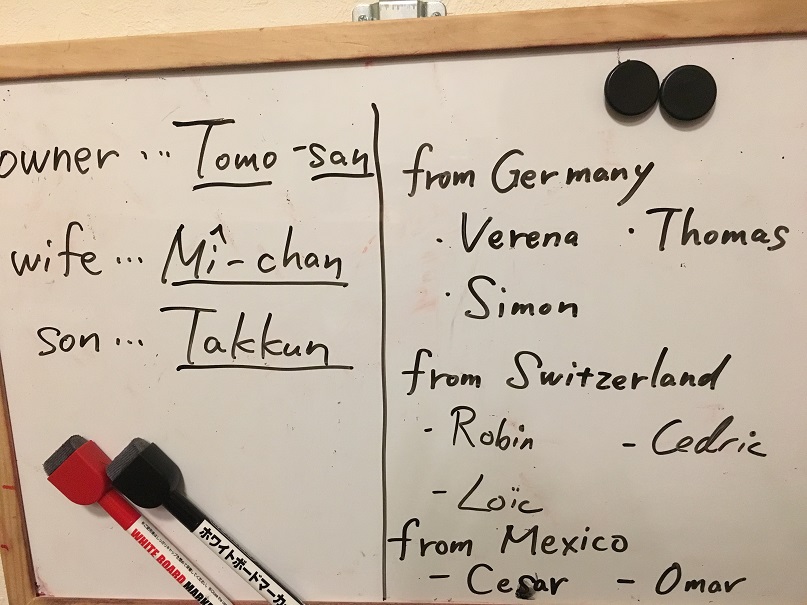 owner ... Tomo-san
wife ... Mî-chan
son ... Takkun
from Germany
· Verena · Thomas
· Simon
from Switzerland
- Robin - Cedric
- Loïc
from Mexico
- Cesar - Omar
WHITE BOARD MARK
ホワイトボードマーカー